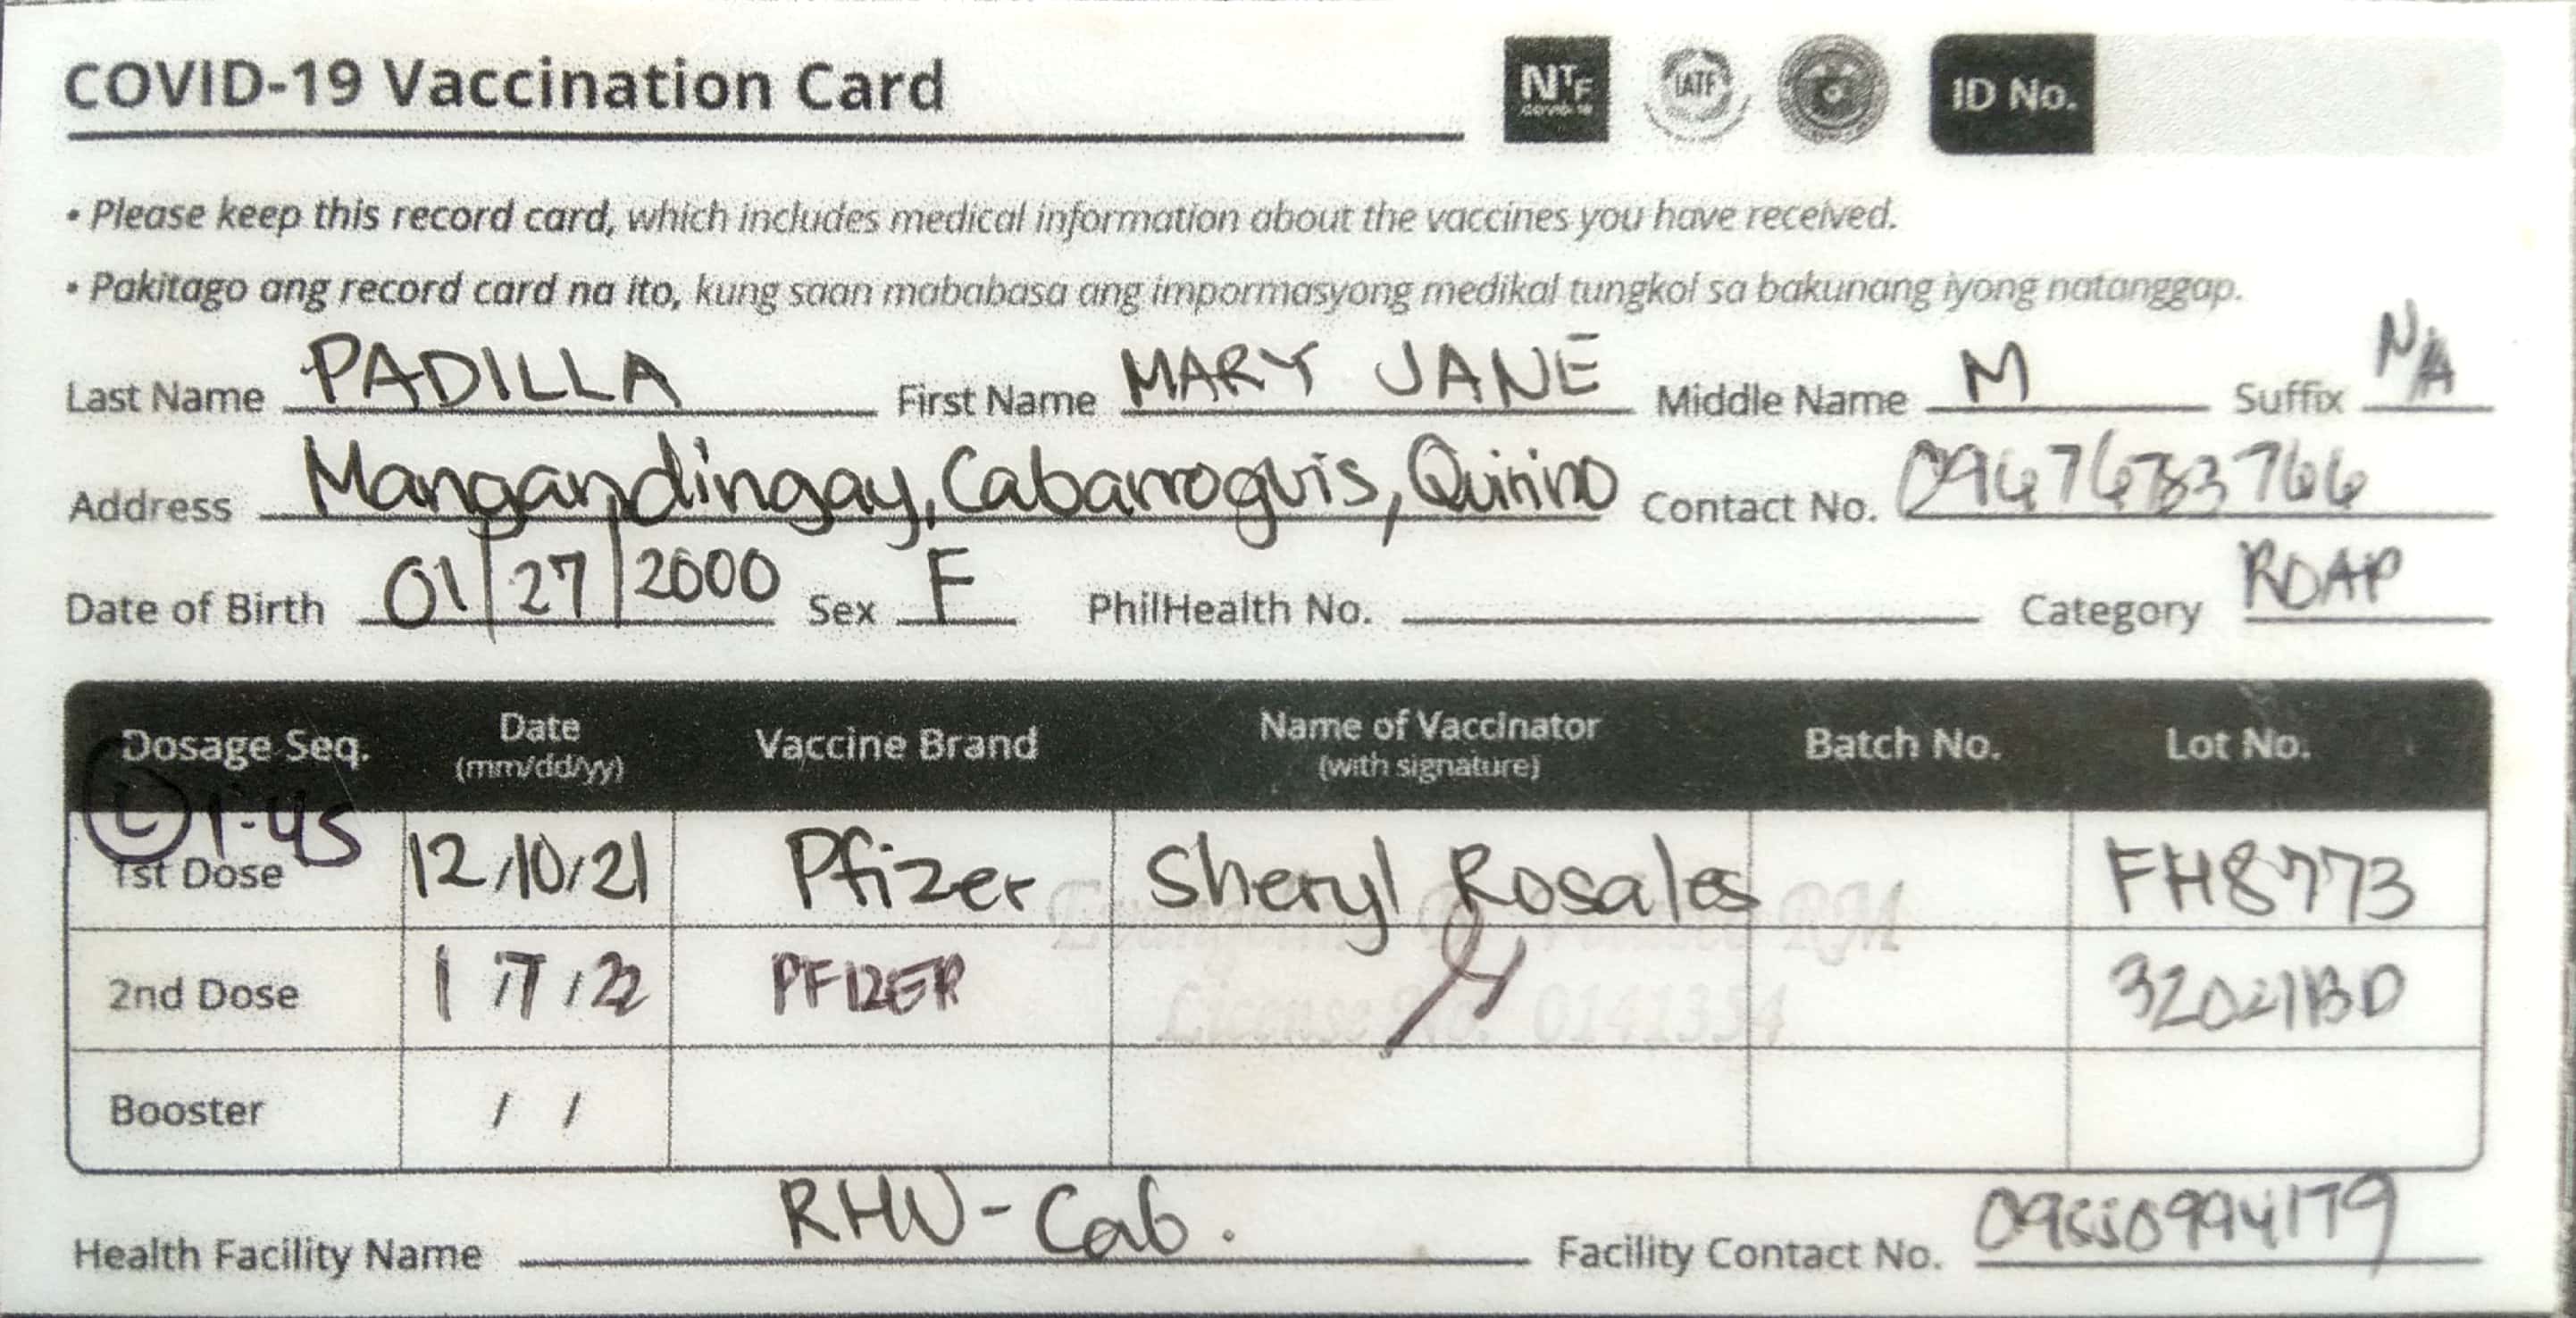 COVID-19 Vaccination Card NTF COVID-19 IATF ID No.
• Please keep this record card, which includes medical information about the vaccines you have received.
• Pakitago ang record card na ito, kung saan mababasa ang impormasyong medikal tungkol sa bakunang iyong natanggap.
Last Name PADILLA First Name MARY JANE Middle Name M Suffix N/A
Address Mangandingay, Cabarroguis, Quirino Contact No.
Date of Birth 01/27/2000 Sex F PhilHealth No. Category ROAP
Dosage Seq. Date (mm/dd/yy) Vaccine Brand Name of Vaccinator (with signature) Batch No. Lot No.
L 1:45
1st Dose 12/10/21 Pfizer Sheryl Rosales FH8773
RM
2nd Dose 1/7/22 PFIZER 32021BD
License No. 0141334
Booster / /
Health Facility Name RHU-Cab. Facility Contact No.